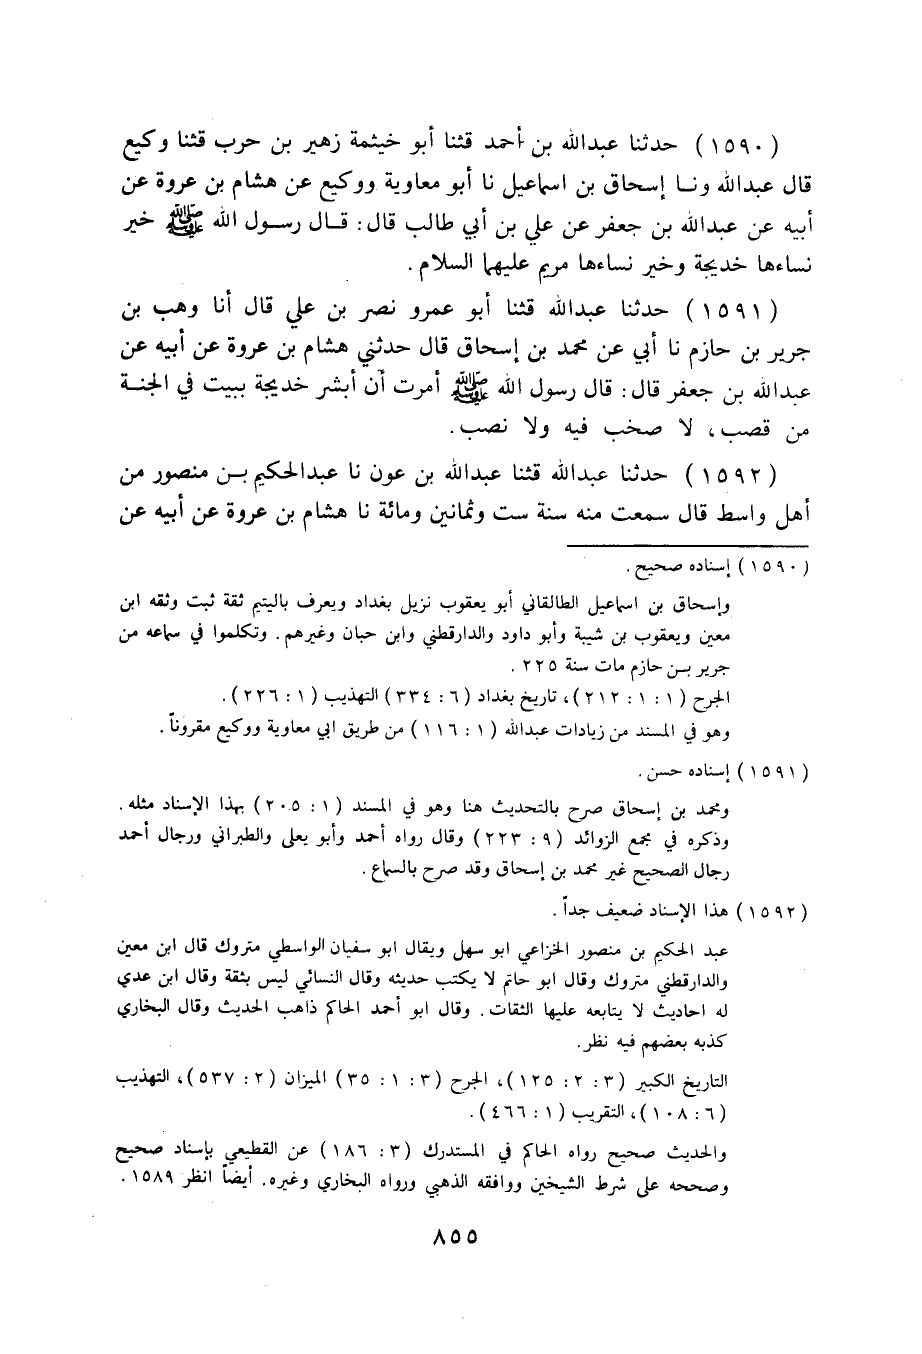 (١٥٩٠) حدثنا عبدالله بن أحمد قثنا أبو خيثمة زهير بن حرب قثنا وكيع
قال عبدالله ونا إسحاق بن اسماعيل نا أبو معاوية ووكيع عن هشام بن عروة عن
أبيه عن عبدالله بن جعفر عن علي بن أبي طالب قال: قال رسول الله ﷺ خير
نساءها خديجة وخير نساءها مريم عليهما السلام.
(١٥٩١) حدثنا عبدالله قثنا أبو عمرو نصر بن علي قال أنا وهب بن
جرير بن حازم نا أبي عن محمد بن إسحاق قال حدثني هشام بن عروة عن أبيه عن
عبدالله بن جعفر قال: قال رسول الله ﷺ أمرت أن أبشر خديجة ببيت في الجنة
من قصب، لا صخب فيه ولا نصب.
(١٥٩٢) حدثنا عبدالله قثنا عبدالله بن عون نا عبدالحكيم بن منصور من
أهل واسط قال سمعت منه سنة ست وثمانين ومائة نا هشام بن عروة عن أبيه عن
(١٥٩٠) إسناده صحيح.
وإسحاق بن اسماعيل الطالقاني أبو يعقوب نزيل بغداد ويعرف باليتيم ثقة ثبت وثقه ابن
معين ويعقوب بن شيبة وأبو داود والدارقطني وابن حبان وغيرهم. وتكلموا في سماعه من
جرير بن حازم مات سنة ٢٢٥.
الجرح (١: ١: ٢١٢)، تاريخ بغداد (٦: ٣٣٤) التهذيب (١: ٢٢٦).
وهو في المسند من زيادات عبدالله (١: ١١٦) من طريق ابي معاوية ووكيع مقروناً.
(١٥٩١) إسناده حسن.
ومحمد بن إسحاق صرح بالتحديث هنا وهو في المسند (١: ٢٠٥) بهذا الإسناد مثله.
وذكره في مجمع الزوائد (٩: ٢٢٣) وقال رواه أحمد وأبو يعلى والطبراني ورجال أحمد
رجال الصحيح غير محمد بن إسحاق وقد صرح بالسماع.
(١٥٩٢) هذا الإسناد ضعيف جداً.
عبد الحكيم بن منصور الخزاعي ابو سهل ويقال ابو سفيان الواسطي متروك قال ابن معين
والدارقطني متروك وقال ابو حاتم لا يكتب حديثه وقال النسائي ليس بثقة وقال ابن عدي
له احاديث لا يتابعه عليها الثقات. وقال ابو أحمد الحاكم ذاهب الحديث وقال البخاري
كذبه بعضهم فيه نظر.
التاريخ الكبير (٣: ٢: ١٢٥)، الجرح (٣: ١: ٣٥) الميزان (٢: ٥٣٧)، التهذيب
(٦: ١٠٨)، التقريب (١: ٤٦٦).
والحديث صحيح رواه الحاكم في المستدرك (٣: ١٨٦) عن القطيعي بإسناد صحيح
وصححه على شرط الشيخين ووافقه الذهبي ورواه البخاري وغيره. أيضاً انظر ١٥٨٩.
٨٥٥